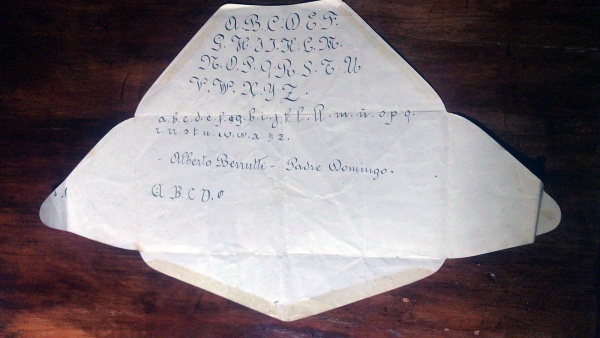 A.B.C.D.E.F.
G.H.I.J.K.L.M.
N.O.P.Q.R.S.T.U
V.W.X.Y.Z.
a.b.c.d.e.f.g.h.i.j.k.l.ll.m.n.ñ.o.p.q.
r.rr.s.t.u.v.w.x.y.z.
- Alberto Berrutti - Padre Domingo.
A.B.C.D.